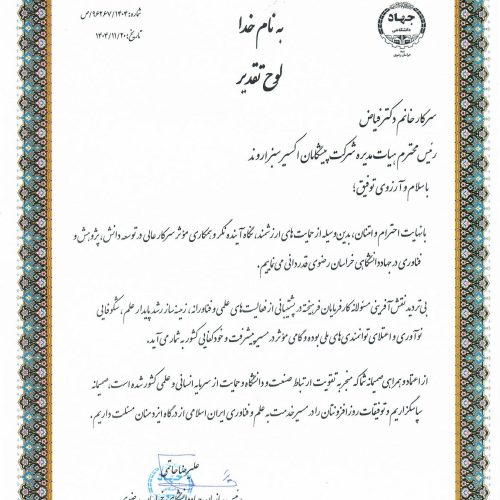 شماره: ۹۶۲۶۷/۱۴۰۴/ص
تاریخ: ۱۴۰۴/۱۱/۲۰
جهاد
دانشگاهی
خراسان رضوی
به نام خدا
لوح تقدیر
سرکار خانم دکتر فیاض
رئیس محترم هیات مدیره شرکت پیشگامان اکسیر سبز اروند
با سلام و آرزوی توفیق؛
با نهایت احترام و امتنان، بدین وسیله از حمایت های ارزشمند، نگاه آینده نگر و همکاری مؤثر سرکار عالی در توسعه دانش، پژوهش و
فناوری در جهاد دانشگاهی خراسان رضوی قدردانی می نماییم.
بی تردید نقش آفرینی مسئولانه کارفرمایان فرهیخته در پشتیبانی از فعالیت های علمی و فناورانه، زمینه ساز رشد پایدار علم، شکوفایی
نوآوری و اعتلای توانمندی های ملی بوده و گامی مؤثر در مسیر پیشرفت و خودکفایی کشور به شمار می آید.
از اعتماد و همراهی صمیمانه شما که منجر به تقویت ارتباط صنعت و دانشگاه و حمایت از سرمایه انسانی و علمی کشور شده است، صمیمانه
سپاسگزاریم و توفیقات روزافزونتان را در مسیر خدمت به علم و فناوری ایران اسلامی از درگاه ایزد منان مسئلت داریم.
علیرضا حاتمی